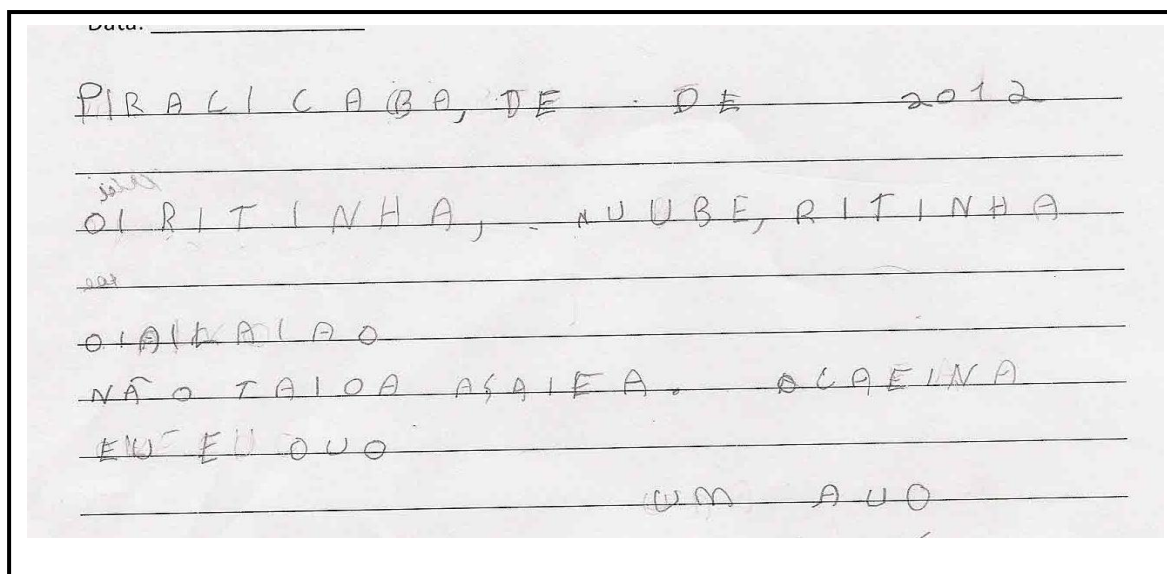 Data:
PIRACICABA, DE DE 2012
OI RITINHA, NUUBE, RITINHA
NÃO TAIOA ASAIEA. OCAEINA
EU EU OUO
UM AUO